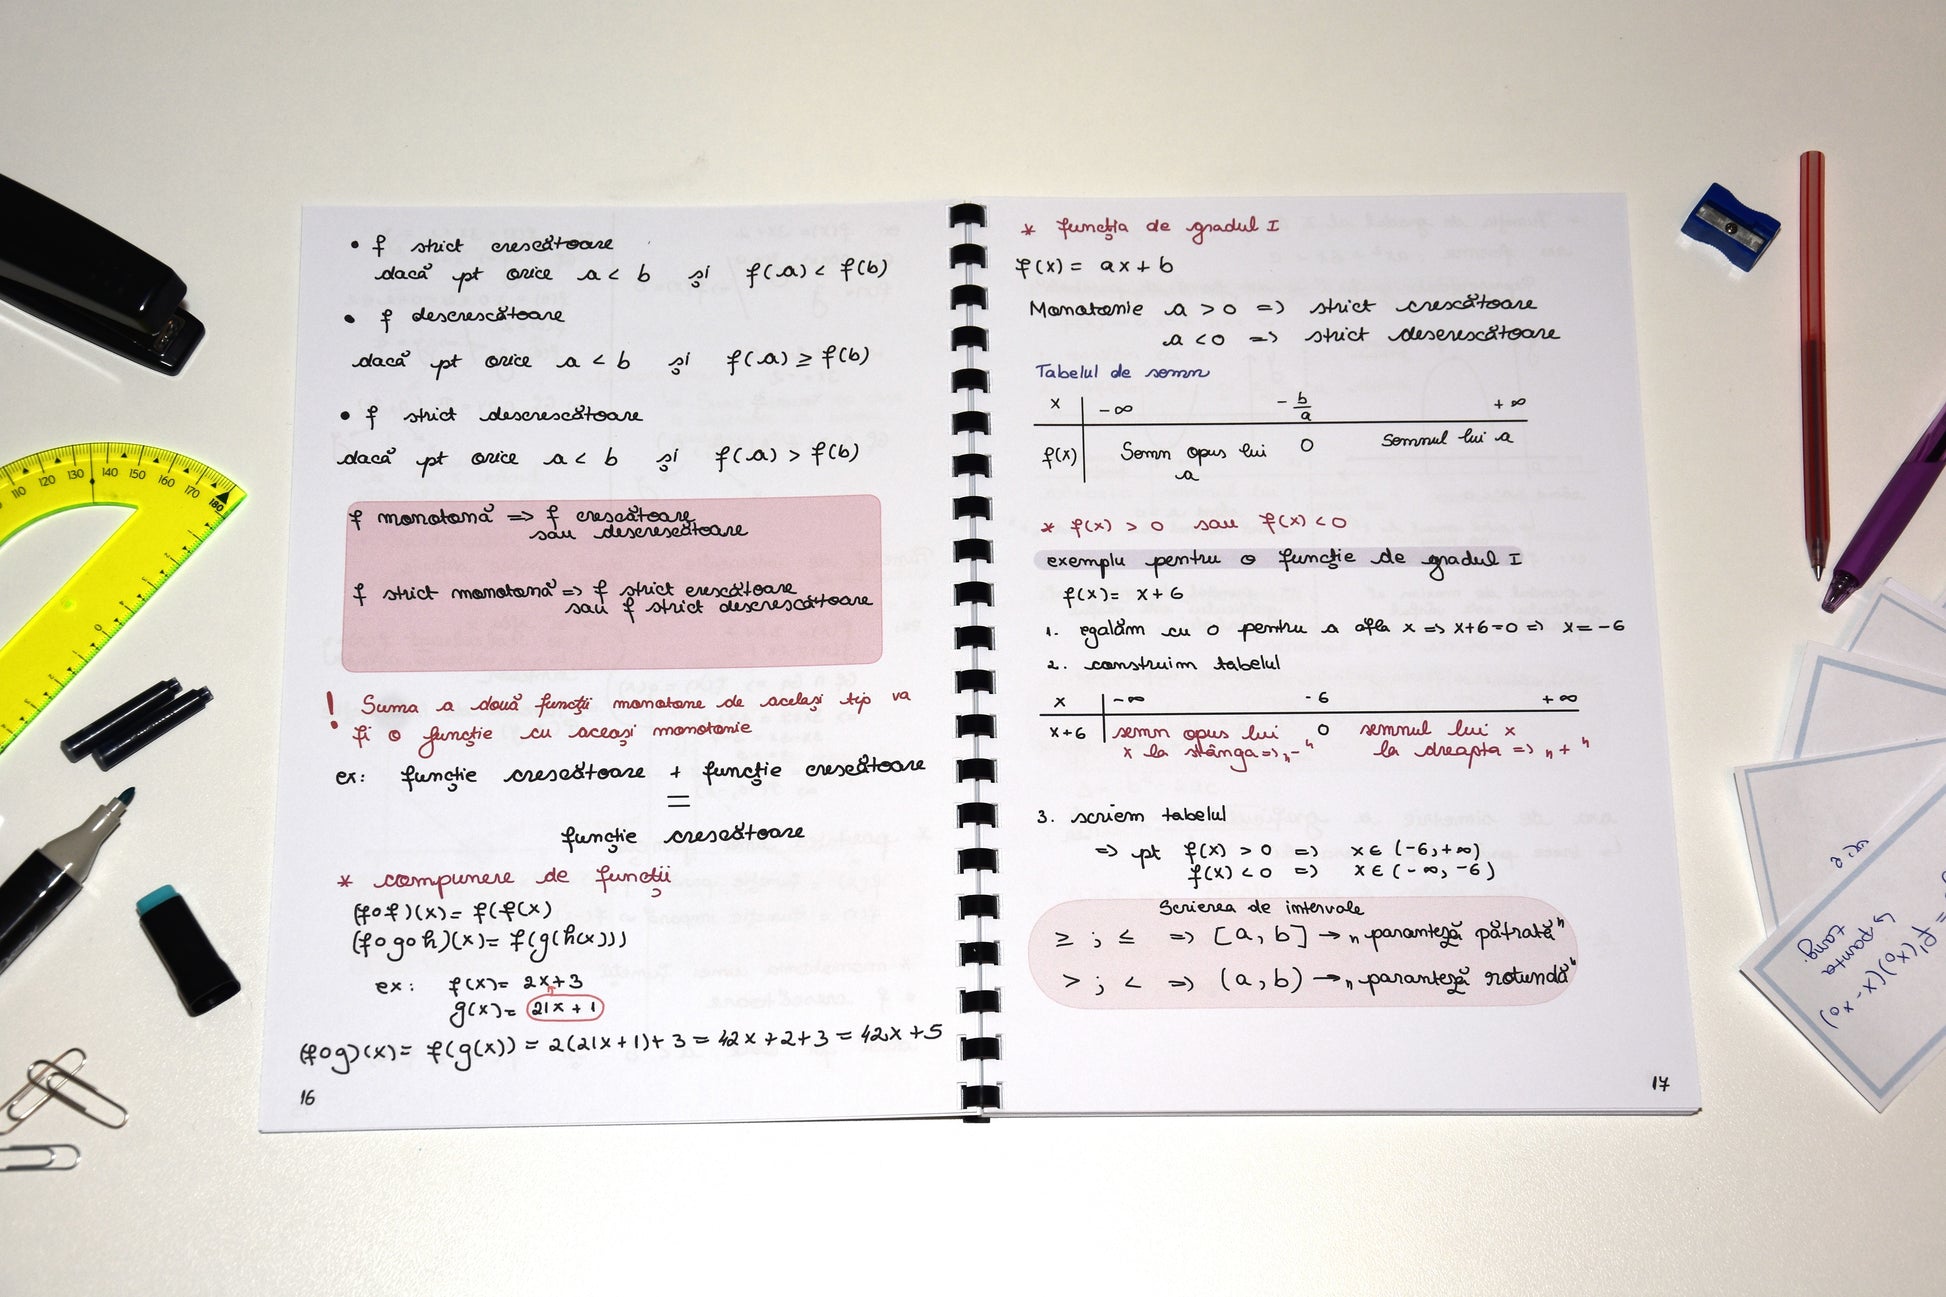 • f strict crescătoare
dacă pt orice a < b și f(a) < f(b)
• f descrescătoare
dacă pt orice a < b și f(a) ≥ f(b)
• f strict descrescătoare
dacă pt orice a < b și f(a) > f(b)
f monotonă => f crescătoare
sau descrescătoare
f strict monotonă => f strict crescătoare
sau f strict descrescătoare
! Suma a două funcții monotone de același tip va
fi o funcție cu aceași monotonie
ex: funcție crescătoare + funcție crescătoare
=
funcție crescătoare
* compunere de funcții
(f o f)(x) = f(f(x)
(f o g o h)(x) = f(g(h(x)))
ex: f(x) = 2x+3
g(x) = 21x + 1
(f o g)(x) = f(g(x)) = 2(21x+1)+3 = 42x+2+3 = 42x+5
16
* funcția de gradul I
f(x) = ax + b
Monotonie a > 0 => strict crescătoare
a < 0 => strict descrescătoare
Tabelul de semn
x -∞ -b/a +∞
f(x) Semn opus lui 0 Semnul lui a
a
* f(x) > 0 sau f(x) < 0
exemplu pentru o funcție de gradul I
f(x) = x + 6
1. egalăm cu 0 pentru a afla x => x+6=0 => x = -6
2. construim tabelul
x -∞ -6 +∞
x+6 semn opus lui 0 semnul lui x
x la stânga => „-" la dreapta => „+"
3. scriem tabelul
=> pt f(x) > 0 => x ∈ (-6, +∞)
f(x) < 0 => x ∈ (-∞, -6)
Scrierea de intervale
≥ ; ≤ => [a, b] → „paranteză pătrată"
> ; < => (a, b) → „paranteză rotundă"
17
110 120 130 140 150 160 170 180
0
= f'(x₀)(x-x₀)
↳ panta
tang.